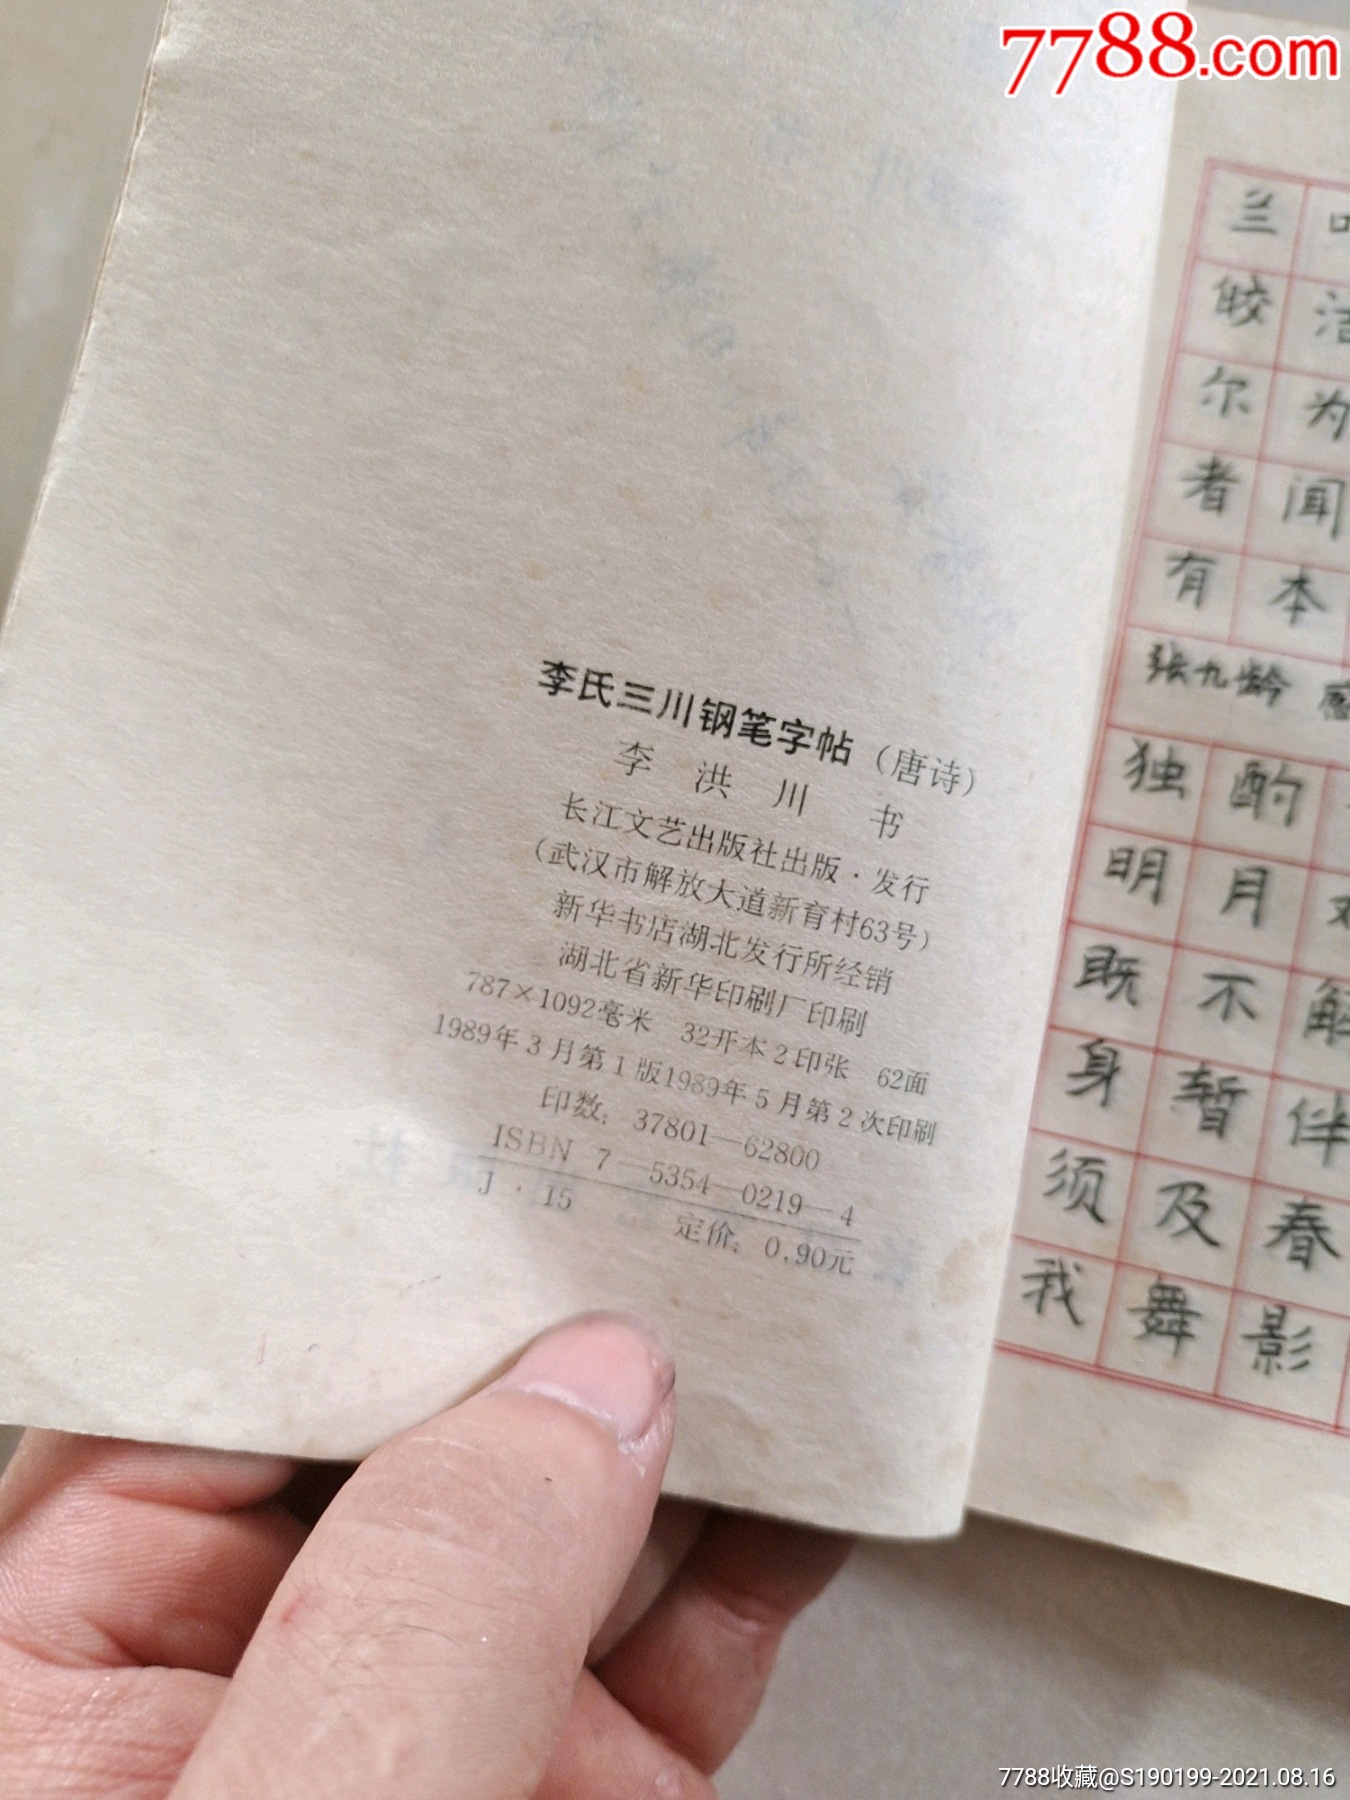 7788.com
李氏三川钢笔字帖（唐诗）
李 洪 川 书
长江文艺出版社出版·发行
（武汉市解放大道新育村63号）
新华书店湖北发行所经销
湖北省新华印刷厂印刷
787×1092毫米 32开本 2印张 62面
1989年3月第1版1989年5月第2次印刷
印数：37801—62800
ISBN 7—5354—0219—4
J·15 定价：0.90元
兰 叶
皎 洁
尔 为
者 闻
有 本
张九龄 感
独 酌
明 月
既 不 解
身 暂 伴
须 及 春
我 舞 影
7788收藏@S190199-2021.08.16